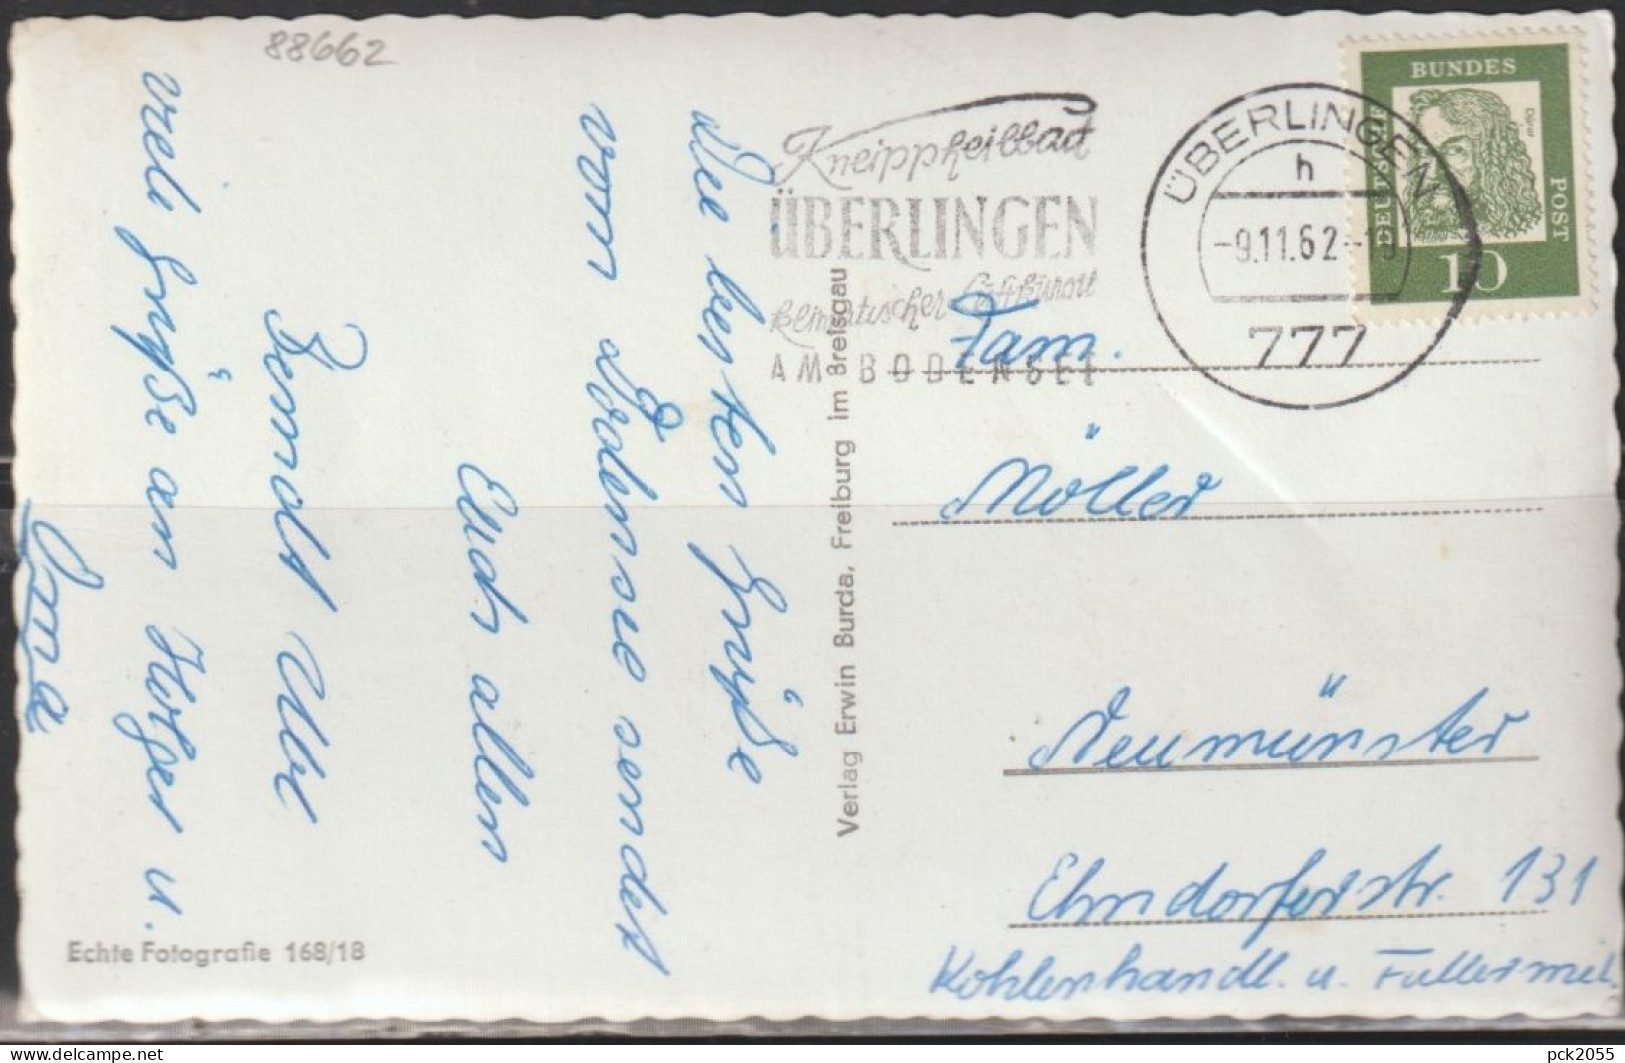 88662
Die besten Grüße
vom Bodensee sendet
Euch allen
Berndt Uwe
viele Grüße an Holger u.
Oma
Echte Fotografie 168/18
Verlag Erwin Burda, Freiburg im Breisgau
Kneippheilbad
ÜBERLINGEN
klimatischer Luftkurort
AM BODENSEE
ÜBERLINGEN
h
-9.11.62-19
777
BUNDES
POST
DEUTSCHE
Dürer
10
Fam.
Möller
Neumünster
Ehndorferstr. 131
Kohlenhandl. u. Futtermitl.
delcampe.net
pck2055